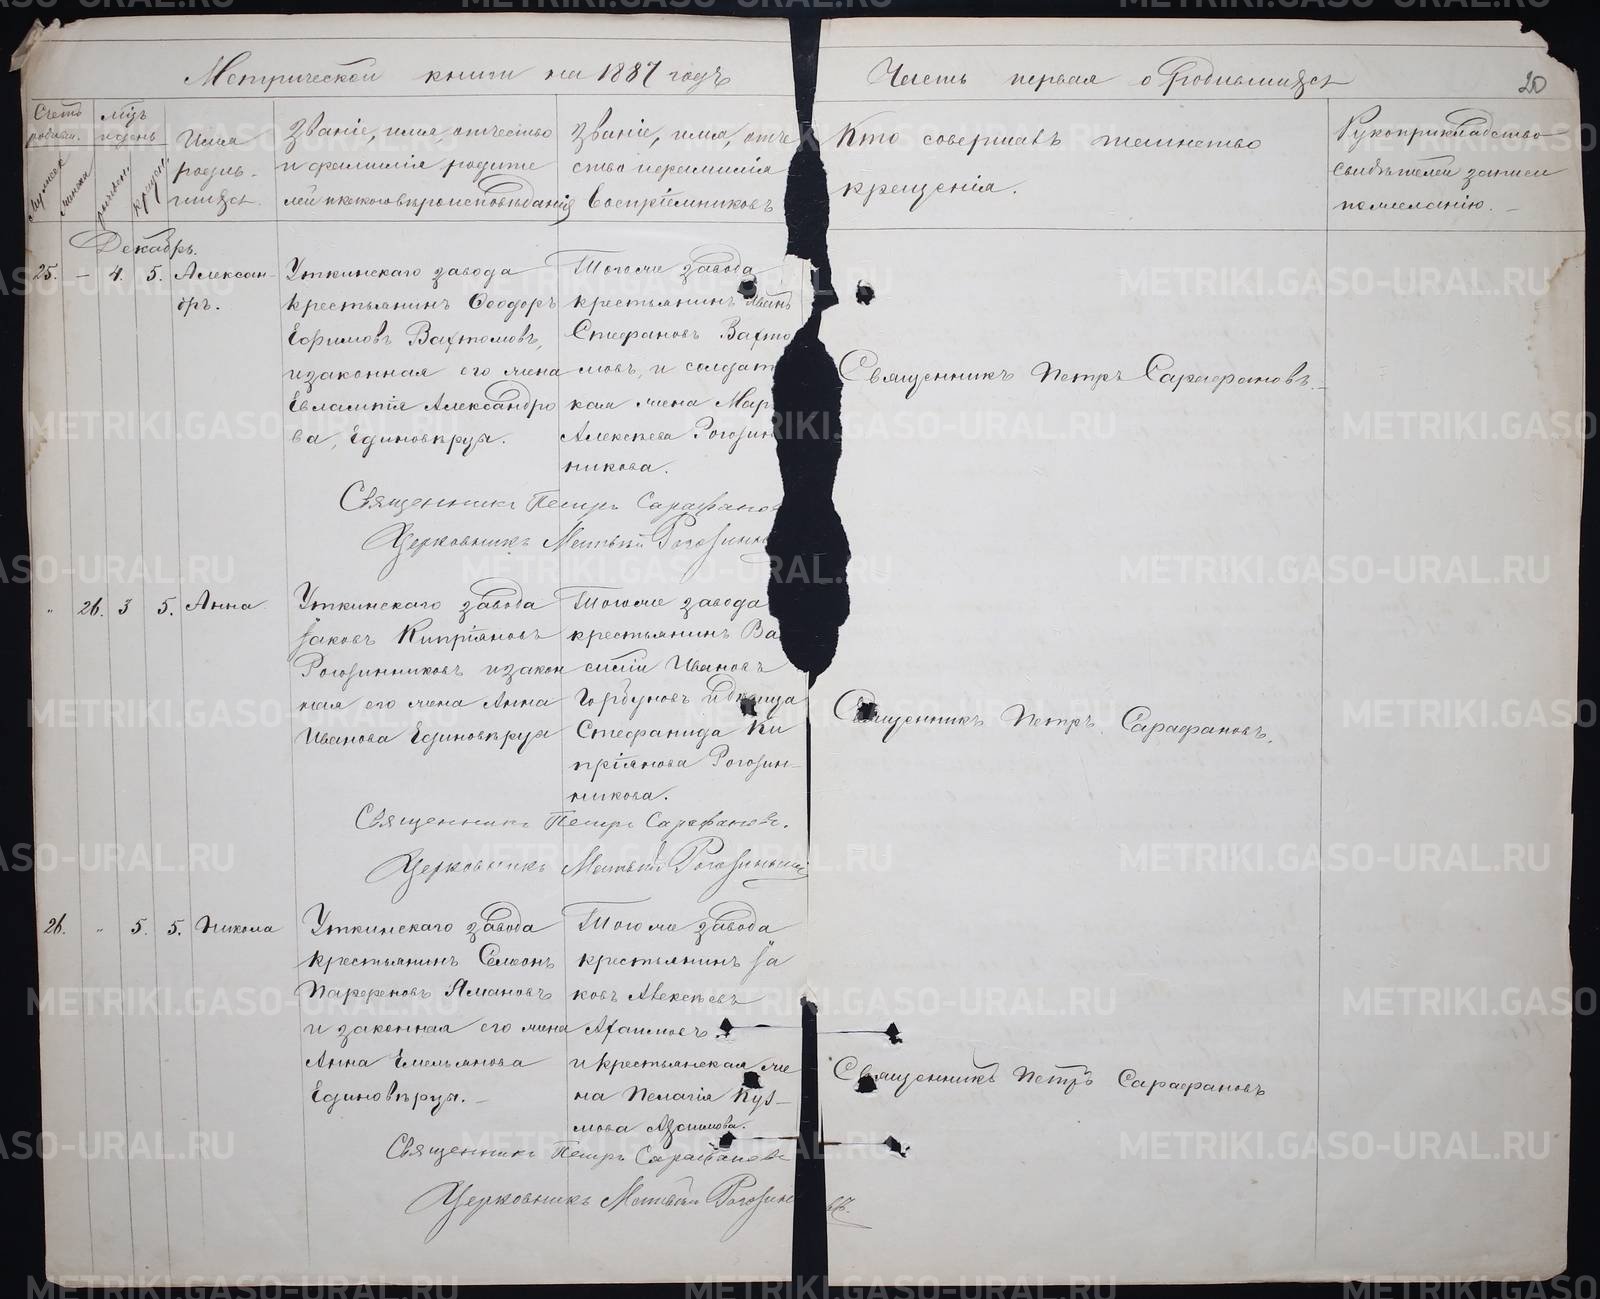 Метрической книги на 1887 годъ
Часть первая о родившихся
20
Счетъ родивш.
Мужеск
Женск
мцъ и день
рожден.
крещен.
Имя
родив-
шихся.
Званіе, имя, отчество
и фамилія родите
лей и какого вѣроисповѣданія
Званіе, имя, отче
ство и фамилія
воспріемниковъ
Кто совершалъ таинство
крещенія.
Рукоприкладство
свидѣтелей записи
по желанію.
Декабрь.
25. – 4. 5. Алексан-
дръ.
Уткинскаго завода
крестьянинъ Ѳеодоръ
Ефимовъ Вахтомовъ,
и законная его жена
Евлампія Александро
ва, Единовѣрцы.
Тогоже завода
крестьянинъ Иванъ
Стефановъ Вахто
мовъ, и солдат
кая жена Мар
Алексѣева Рогозин
никова.
Священникъ Петръ Сарафановъ.
Священникъ Петръ Сарафанов
Церковникъ Матвѣй Рогозинн
" 26. 3 5. Анна
Уткинскаго завода
Іаковъ Кипріяновъ
Рогозинниковъ и закон
ная его жена Анна
Иванова Единовѣрцы
Тогоже завода
крестьянинъ Ва
силій Ивановъ
Горбуновъ и дѣвица
Стефанида Ки
пріянова Рогозин-
никова.
Священникъ Петръ Сарафановъ.
Священникъ Петръ Сарафановъ.
Церковникъ Матвѣй Рогозинниковъ
26. " 5. 5. Никола
Уткинскаго завода
крестьянинъ Семеонъ
Парфеновъ Ямановъ
и законная его жена
Анна Емельянова
Единовѣрцы. –
Тогоже завода
крестьянинъ Іа
ковъ Алексѣевъ
Азаимовъ.
и крестьянская же
на Пелагія Куз-
мова Азаимова.
Священникъ Петръ Сарафановъ
Священникъ Петръ Сарафановъ
Церковникъ Матвѣй Рогозин
METRIKI.GASO-URAL.RU